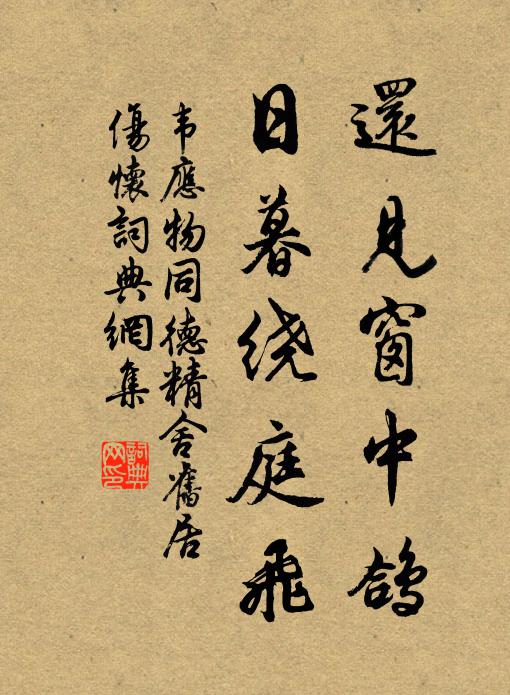 還見窗中鴿
日暮绕庭飛
韦應物同德精舍舊居
傷懷詞典網集
詞典
网印